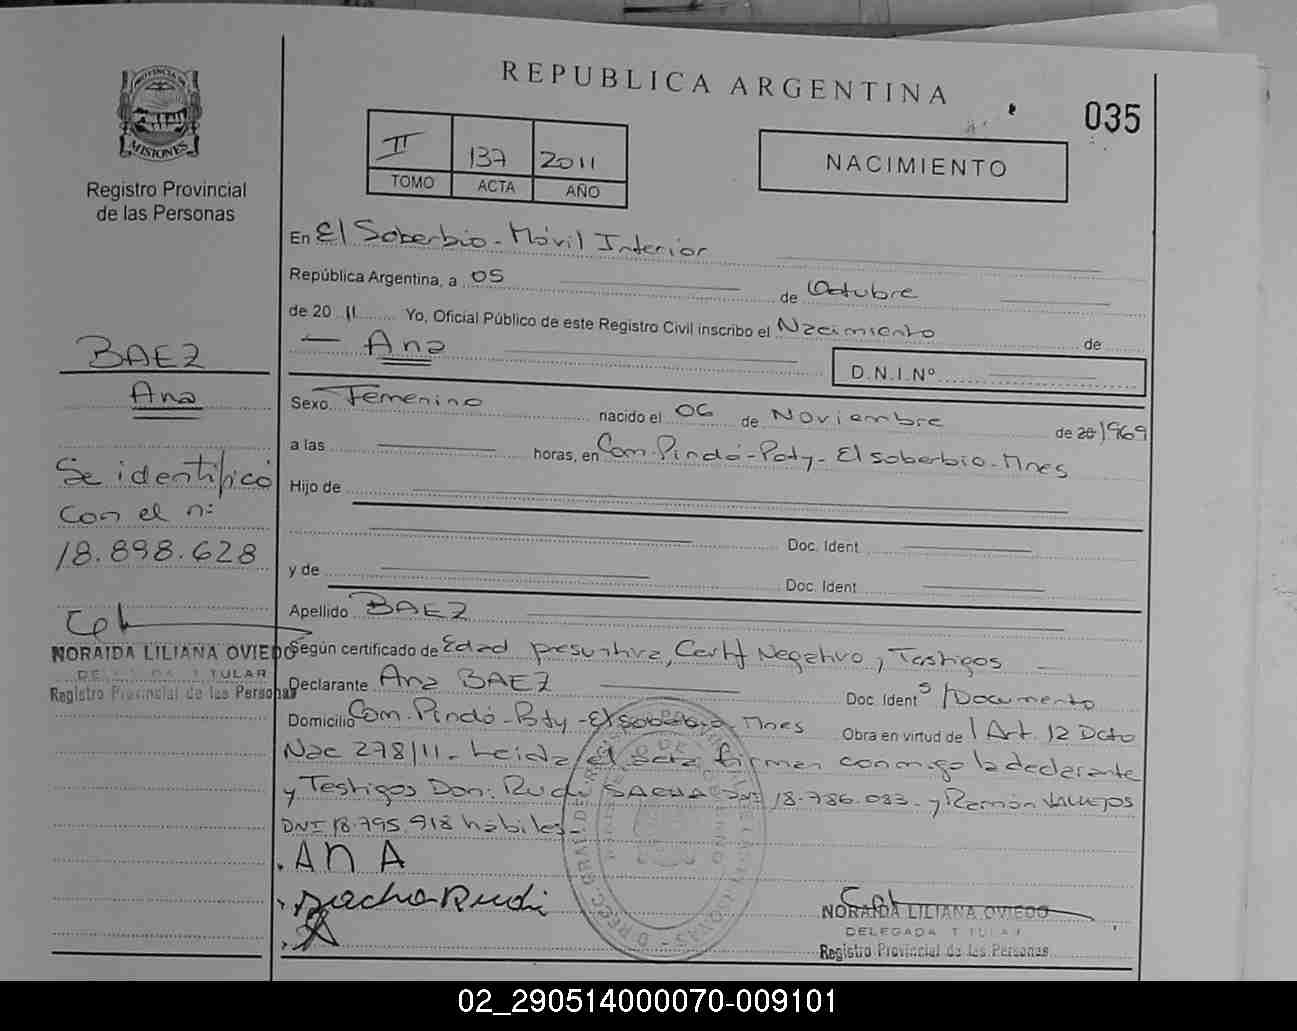 REPUBLICA ARGENTINA
035
PROVINCIA DE
MISIONES
Registro Provincial
de las Personas
II 137 2011
TOMO ACTA AÑO
NACIMIENTO
En El Soberbio - Móvil Interior
República Argentina, a 05 de Octubre
de 20 11 Yo, Oficial Público de este Registro Civil inscribo el Nacimiento de
— Ana
D.N.I.Nº
BAEZ
Ana
Se identificó
con el n:
18.898.628
NORAIDA LILIANA OVIEDO
DELEGADA TITULAR
Registro Provincial de las Personas
Sexo Femenino nacido el 06 de Noviembre de 20 1969
a las horas, en Com. Pindó-Poty - El soberbio - Mnes
Hijo de
Doc. Ident
y de Doc. Ident
Apellido BAEZ
Según certificado de Edad presuntiva, Certf Negativo, Testigos
Declarante Ana BAEZ Doc. Ident s/Documento
Domicilio Com. Pindó-Poty - El soberbio - Mnes Obra en virtud de l Art. 12 Dcto
Nac 278/11 - Leida el acta firman conmigo la declarante
y Testigos Don: Rudi SACHA DNI 18.786.083 - y Ramón VALLEJOS
DNI 18.795.918 hábiles -
. ANA
Sacha Rudi
NORAIDA LILIANA OVIEDO
DELEGADA TITULAR
Registro Provincial de las Personas
02_290514000070-009101